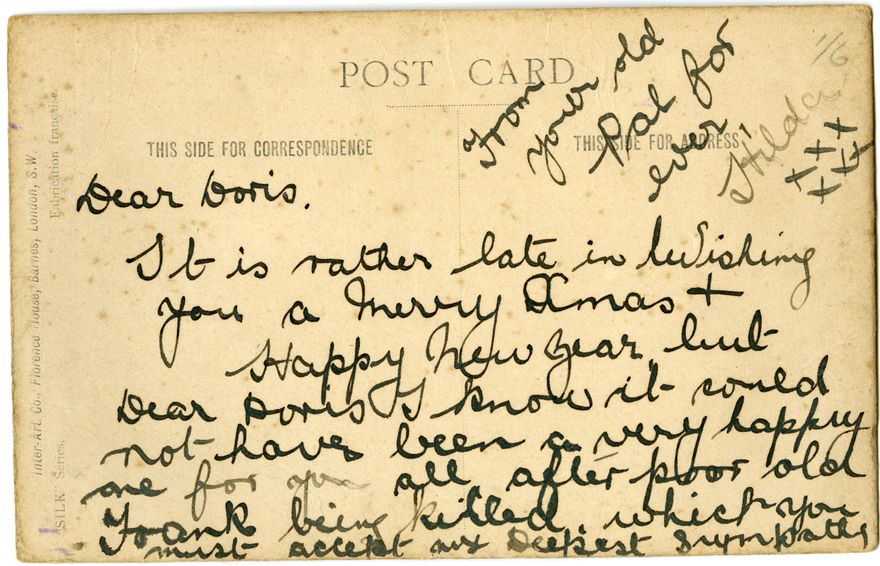 POST CARD
THIS SIDE FOR CORRESPONDENCE
THIS SIDE FOR ADDRESS
1/6
Dear Doris.
It is rather late in Wishing
you a Merry Xmas +
Happy New Year, but
Dear Doris I know it could
not have been a very happy
one for you all, after poor old
Frank being killed, which you
must accept my Deepest Sympathy
From
your old
Pal for
ever,
Hilda
+++
+++
Inter-Art Co., Florence House, Barnes, London, S.W.
"SILK" Series, Fabrication française